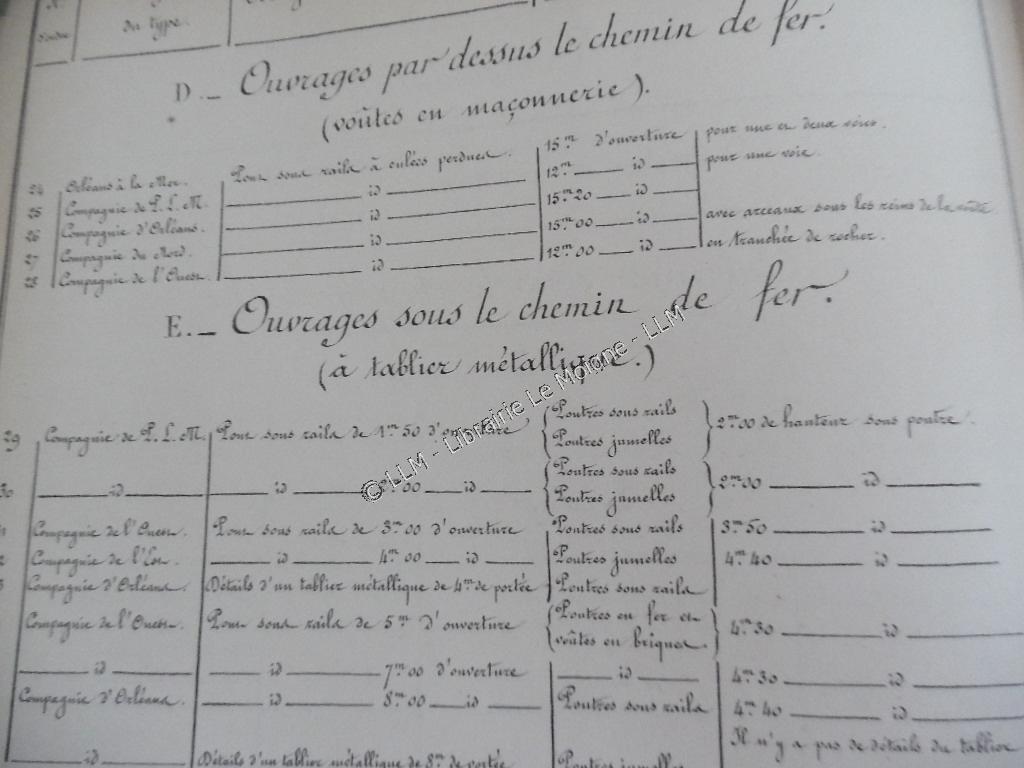 N°
d'ordre
du type.
D._ Ouvrages par dessus le chemin de fer.
(voûtes en maçonnerie).
24 Orléans à la Mer. Pont sous rails à culées perdues. 15.m d'ouverture pour une et deux voies.
25 Compagnie de P. L. M. id 12.m id pour une voie.
26 Compagnie d'Orléans. id 15.m20 id
27 Compagnie du Nord. id 15.m00 id avec arceaux sous les reins de la voûte
28 Compagnie de l'Ouest. id 12.m00 id en tranchée de rocher.
E._ Ouvrages sous le chemin de fer.
(à tablier métallique.)
29 Compagnie de P. L. M. Pont sous rails de 1m50 d'ouverture Poutres sous rails 2m00 de hauteur sous poutre.
Poutres jumelles
30 id id 00 id Poutres sous rails 2m00 id
Poutres jumelles
Compagnie de l'Ouest. Pont sous rails de 3m00 d'ouverture Poutres sous rails 3m50 id
Compagnie de l'Est. id 4m00 id Poutres jumelles 4m40 id
Compagnie d'Orléans. Détails d'un tablier métallique de 4m de portée Poutres sous rails
Compagnie de l'Ouest. Pont sous rails de 5m d'ouverture Poutres en fer et 4m30 id
voûtes en briques.
id id 7m00 d'ouverture id 4m30 id
Compagnie d'Orléans. id 8m00 id Poutres sous rails 4m40 id
id Détails d'un tablier métallique de 8m de portée Poutres jumelles Il n'y a pas de détails du tablier
© LLM - Librairie Le Motone - LLM